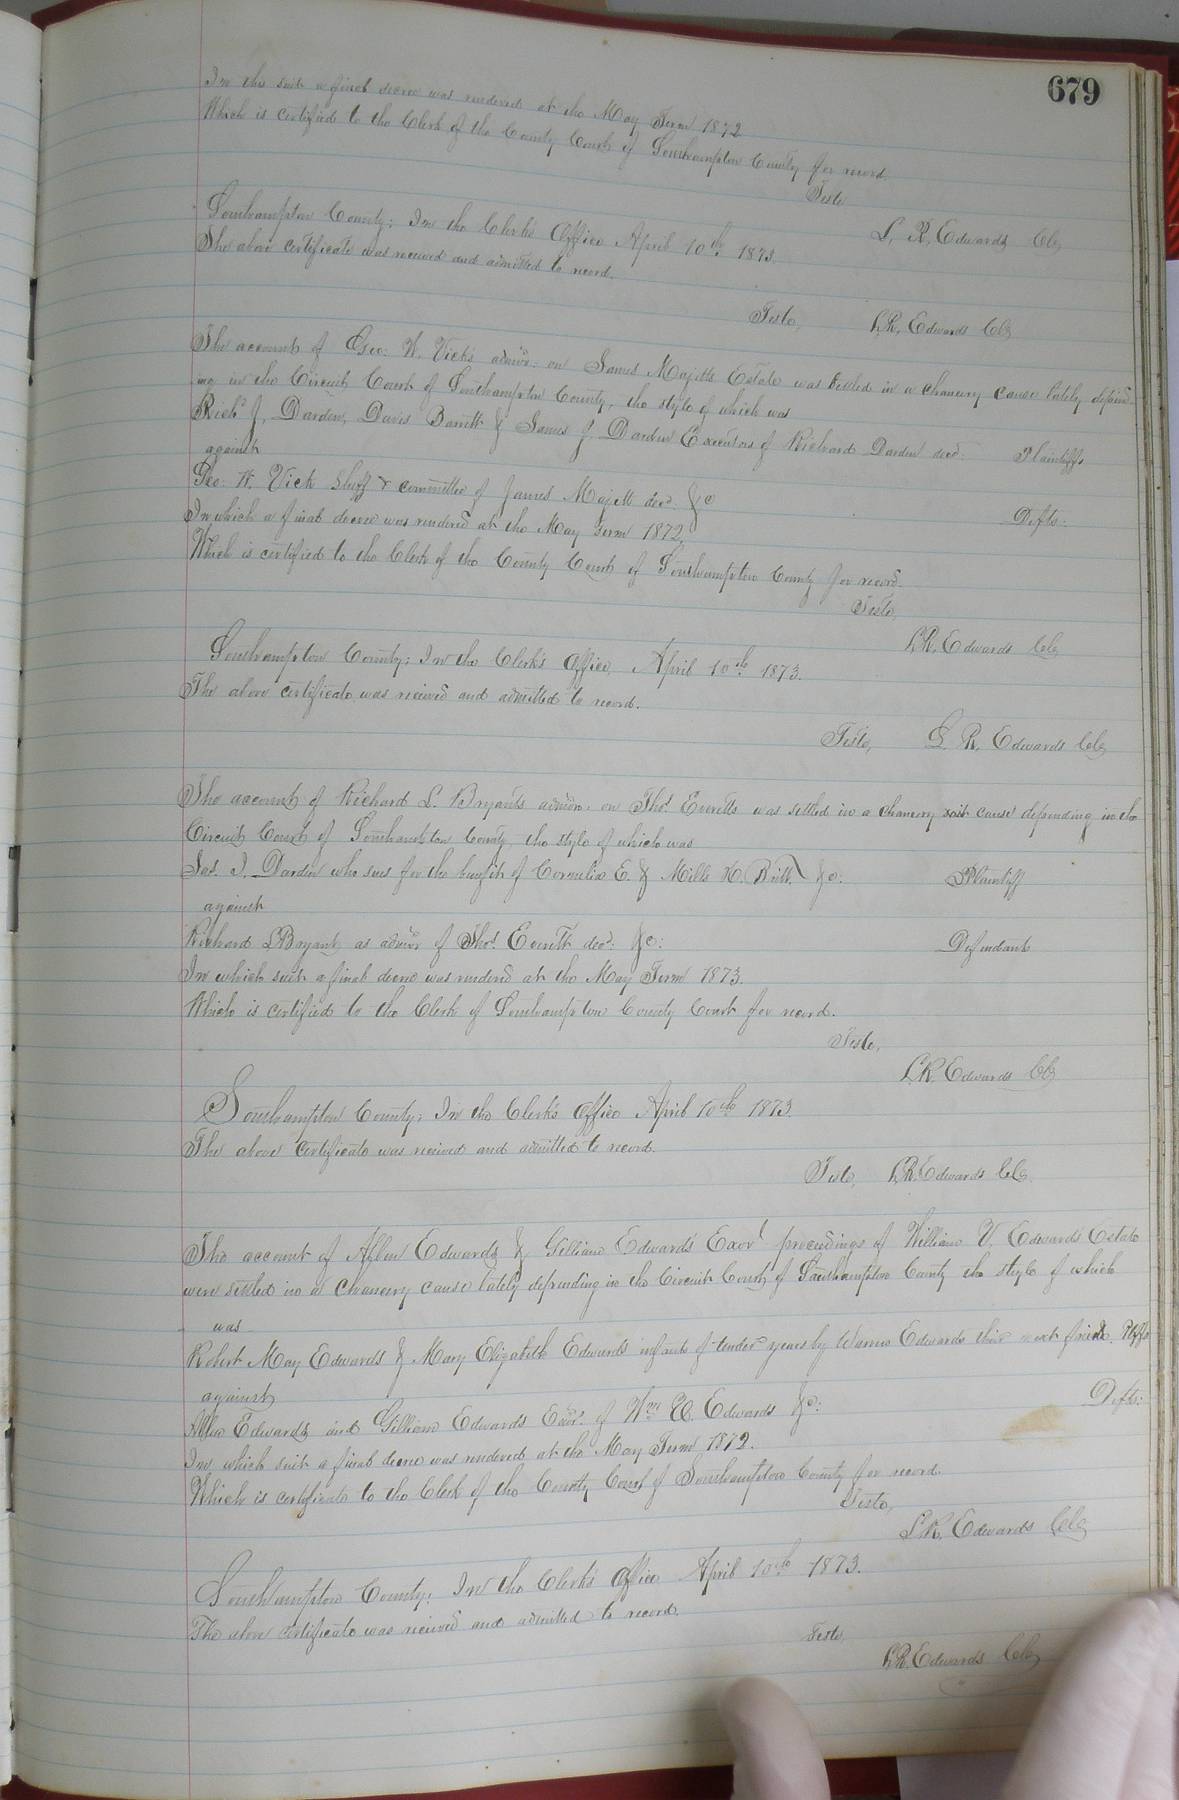 679
In the suit a final decree was rendered at the May Term 1872
Which is certified to the Clerk of the County Court of Southampton County for record.
Teste
L. R. Edwards Clk
Southampton County; In the Clerk's Office April 10th 1873.
The above certificate was received and admitted to record.
Teste, L.R. Edwards Clk
The account of Geo: W. Vick's admr. on James Majetts Estate was settled in a chancery cause lately depend-
ing in the Circuit Court of Southampton County, the style of which was
Richd J. Darden, Davis Barrett & James J. Darden Executors of Richard Darden decd. Plaintiffs
against
Geo. W. Vick Shff & committee of James Majett decd. &c Defts:
In which a final decree was rendered at the May Term 1872,
Which is certified to the Clerk of the County Court of Southampton County for record.
Teste,
L.R. Edwards Clk
Southampton County; In the Clerk's Office, April 10th 1873.
The above certificate was received and admitted to record.
Teste, L. R. Edwards Clk
The account of Richard L. Bryants admr. on Thos. Everetts was settled in a chancery suit cause depending in the
Circuit Court of Southampton County, the style of which was
Jas. J. Darden who sues for the benefit of Cornelia E. & Mills H. Britt &c. Plaintiff
against
Richard L Bryant as admr of Thos. Everett decd: &c: Defendant
In which suit a final decree was rendered at the May Term 1873.
Which is certified to the Clerk of Southampton County Court for record.
Teste,
L.R. Edwards Clk
Southampton County; In the Clerk's Office April 10th 1873.
The above certificate was received and admitted to record.
Teste, L.R. Edwards Clk.
The account of Allen Edwards & Gilliam Edwards Exors proceedings of William Edwards Estate
were settled in a Chancery cause lately depending in the Circuit Court of Southampton County the style of which
was
Robert May Edwards & Mary Elizabeth Edwards infants of tender years by Warren Edwards their next friend. Plffs
against
Allen Edwards and Gilliam Edwards Exors. of Wm Edwards &c: Defts:
In which suit a final decree was rendered at the May Term 1872.
Which is certificate to the Clerk of the County Court of Southampton County for record.
Teste,
L.R. Edwards Clk
Southampton County; In the Clerk's Office April 10th 1873.
The above certificate was received and admitted to record.
Teste,
L.R. Edwards Clk